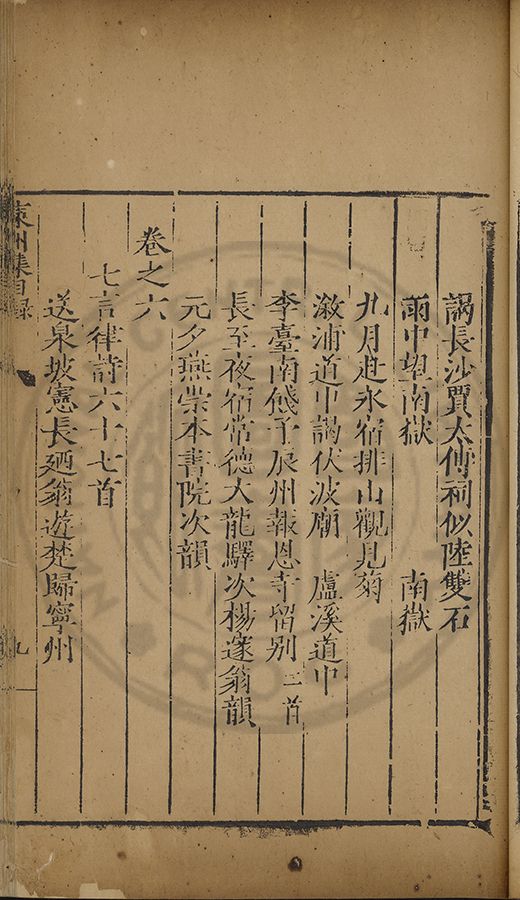 謁長沙賈太傅祠似陸雙石
雨中望南嶽　南嶽
九月赴永宿排山觀見菊
漵浦道中謁伏波廟　盧溪道中
李臺南餞予辰州報恩寺留别二首
長至夜宿常德大龍驛次楊邃翁韻
元夕燕崇本書院次韻
卷之六
七言律詩六十七首
送泉坡憲長廼翁遊楚歸寧州
東州集目録
九